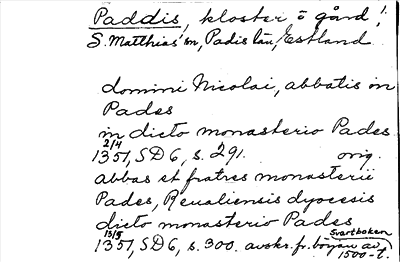 Paddis, kloster o gård!
S. Matthias' sn, Padis län, Estland
domini Nicolai, abbatis in
Pades
in dicto monasterio Pades
2/4
1351, SD 6, s. 291. orig.
abbas et fratres monasterii
Pades, Reualiensis dyocesis
dicto monasterio Pades
13/5 Svartboken
1351, SD 6, s. 300. avskr. fr. början av
1500-t.